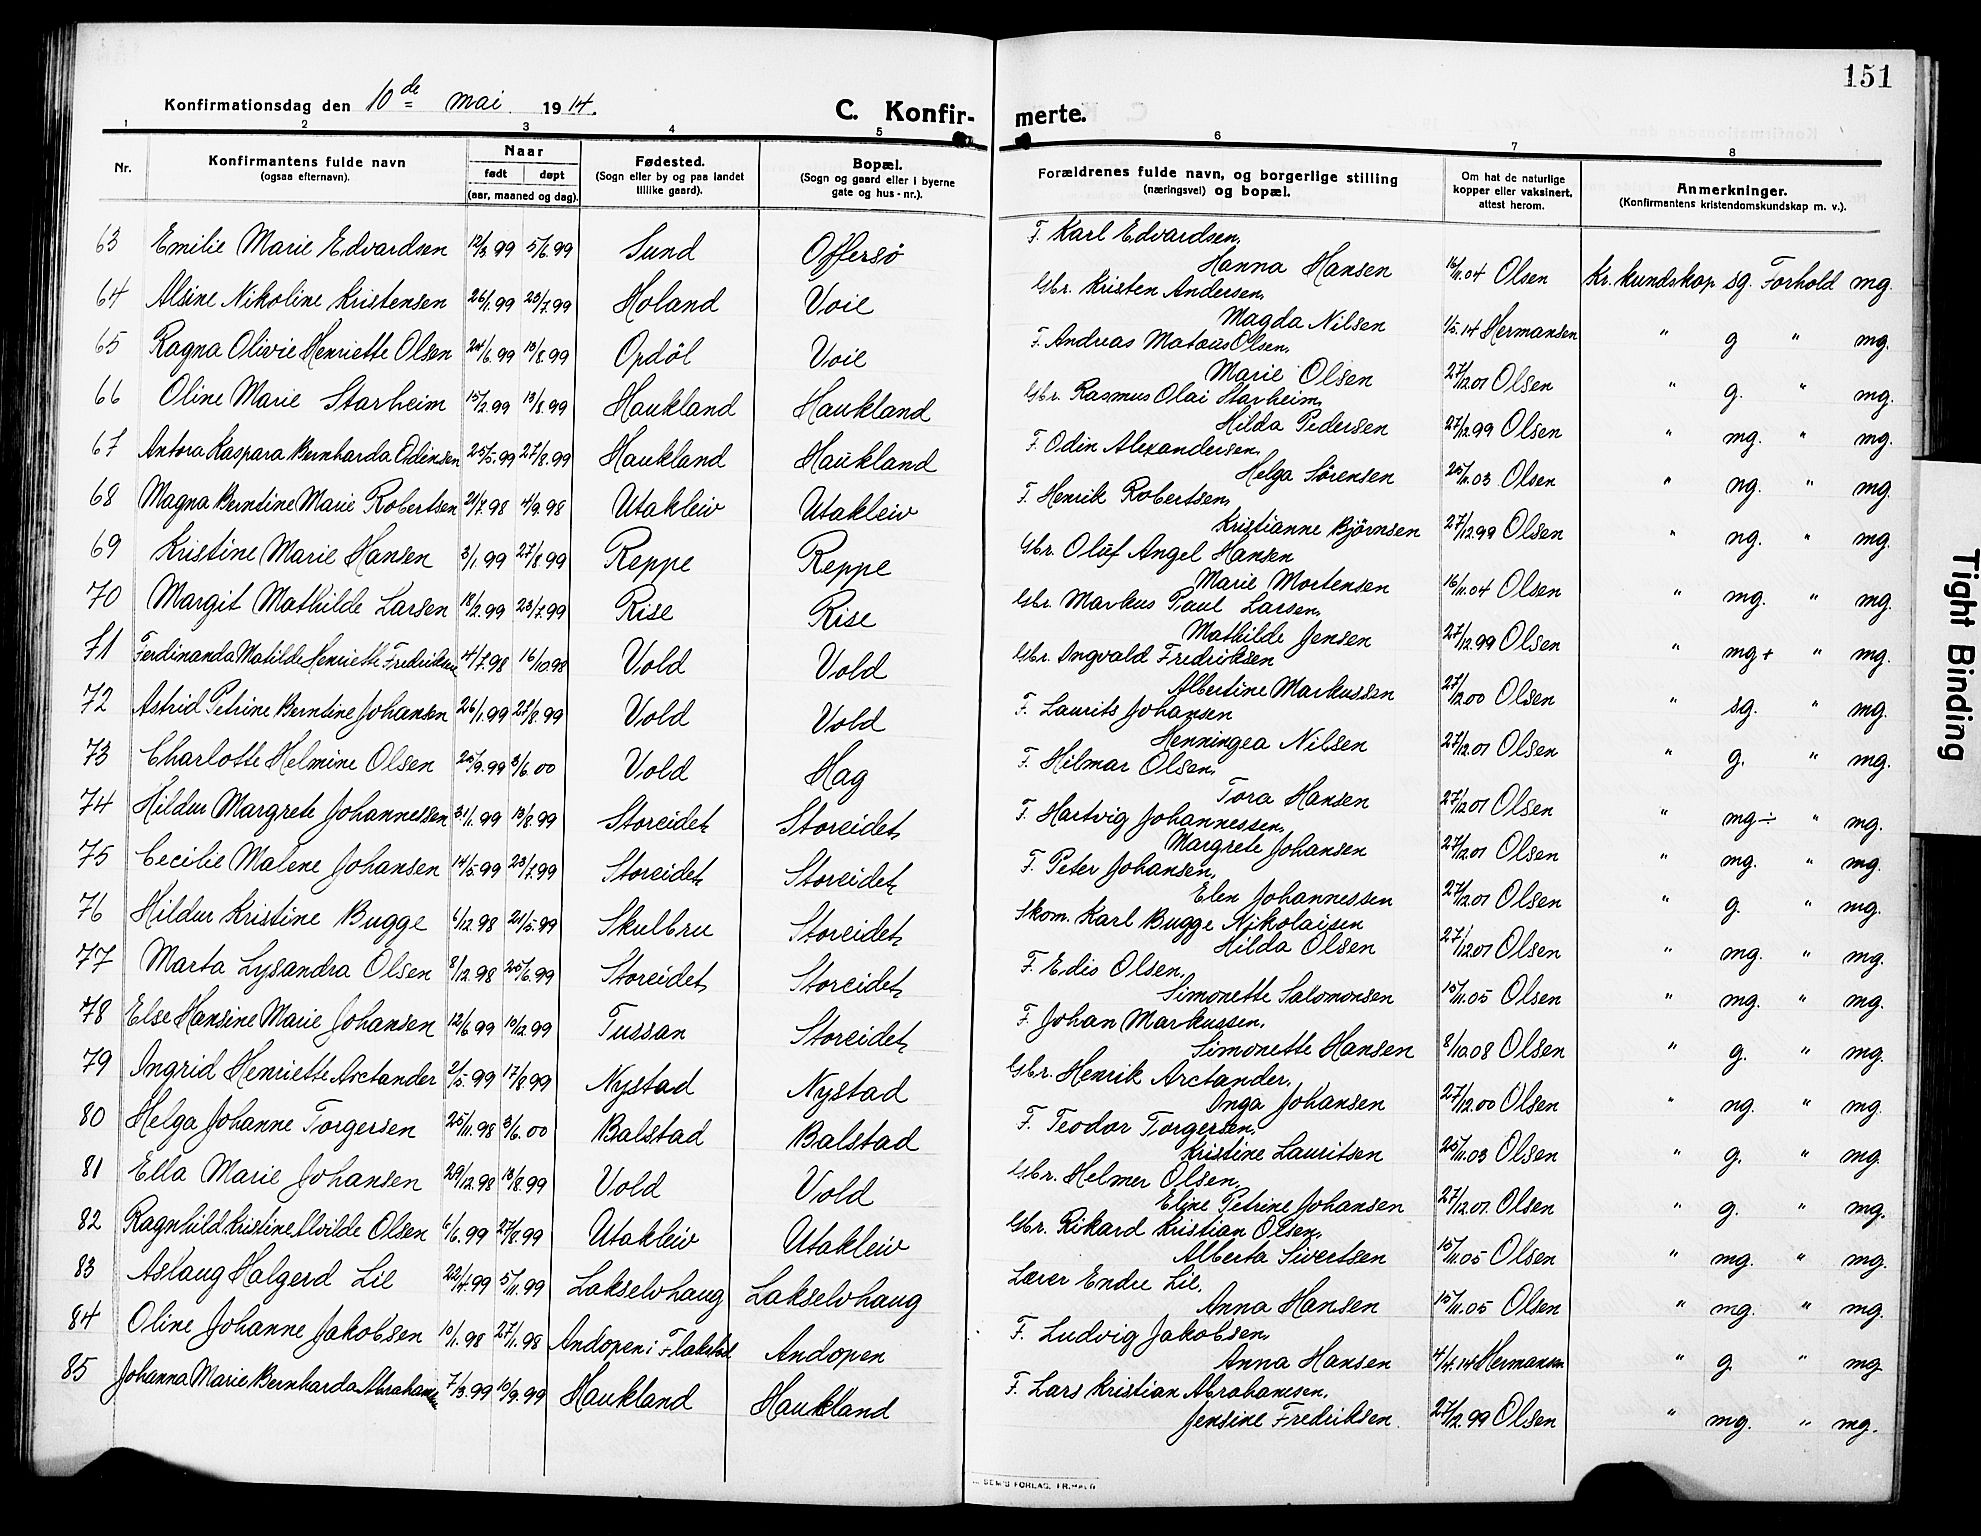 151
Konfirmationsdag den 10de mai 1914.
C. Konfir- merte.
1 2 3 4 5 6 7 8
Nr.
Konfirmantens fulde navn
(ogsaa efternavn).
Naar
født døpt
(aar, maaned og dag).
Fødested.
(Sogn eller by og paa landet
tillike gaard).
Bopæl.
(Sogn og gaard eller i byerne
gate og hus-nr.).
Forældrenes fulde navn, og borgerlige stilling
(næringsvei) og bopæl.
Om hat de naturlige
kopper eller vaksinert,
attest herom.
Anmerkninger.
(Konfirmantens kristendomskundskap m. v.).
63 Emilie Marie Edvardsen 12/3.99 5/6.99 Sund Offersø F. Karl Edvardsen,
Hanna Hansen 16/11.04 Olsen Kr. kundskap sg. Forhold mg.
64 Alsine Nikoline Kristensen 26/1.99 23/7.99 Holand Voie Gbr. Kristen Andersen,
Magda Nilsen 1/5.14 Hermansen " g " mg.
65 Ragna Olivie Henriette Olsen 24/6.99 13/8.99 Opdøl Voie F. Andreas Mataus Olsen,
Marie Olsen 27/12.01 Olsen " g. " mg.
66 Oline Marie Starheim 15/2.99 13/8.99 Haukland Haukland Gbr. Rasmus Olai Starheim,
Hilda Pedersen 27/12.99 Olsen " mg. " mg.
67 Antora Kaspara Bernharda Odinsen 25/5.99 27/8.99 Haukland Haukland F. Odin Alexandersen,
Helga Sørensen 25/11.03 Olsen " ng. " mg.
68 Magna Berntine Marie Robertsen 21/7.98 4/9.98 Utakleiv Utakleiv F. Henrik Robertsen,
Kristianne Bjørnsen 27/12.99 Olsen " ng. " mg.
69 Kristine Marie Hansen 3/1.99 27/8.99 Reppe Reppe Gbr. Oluf Angel Hansen
Marie Mortensen 16/11.04 Olsen " mg. " mg.
70 Margit Mathilde Larsen 18/2.99 23/7.99 Rise Rise Gbr. Markus Paul Larsen,
Mathilde Jensen 27/12.99 Olsen " mg+ " mg.
71 Ferdinanda Matilde Henriette Fredriksen 14/7.98 16/10.98 Vold Vold Gbr. Ingvald Fredriksen
Albertine Markussen 27/12.00 Olsen " sg. " mg.
72 Astrid Petrine Berntine Johansen 26/1.99 27/8.99 Vold Vold F. Laurits Johansen
Henningea Nilsen 27/12.01 Olsen " g. " mg.
73 Charlotte Helmine Olsen 25/9.99 3/6.00 Vold Hag F. Hilmar Olsen,
Tora Hansen 27/12.01 Olsen " mg÷ " mg.
74 Hildur Margrete Johannessen 31/1.99 13/8.99 Storeidet Storeidet F. Hartvig Johannessen,
Margrete Johansen 27/12.01 Olsen " mg. " mg.
75 Cecilie Malene Johansen 14/5.99 23/7.99 Storeidet Storeidet F. Peter Johansen,
Elen Johannessen 27/12.01 Olsen " g. " mg.
76 Hildur Kristine Bugge 6/12.98 21/5.99 Skulbru Storeidet Skom. Karl Bugge Nikolaisen
Hilda Olsen 27/12.01 Olsen " mg. " mg.
77 Marta Lysandra Olsen 8/12.98 25/6.99 Storeidet Storeidet F. Edis Olsen,
Simonette Salomonsen 15/11.05 Olsen " mg. " mg.
78 Else Hansine Marie Johansen 12/6.99 10/12.99 Tussan Storeidet F. Johan Markussen,
Simonette Hansen 8/10.08 Olsen " g. " mg.
79 Ingrid Henriette Arctander 2/5.99 17/8.99 Nystad Nystad Gbr. Henrik Arctander,
Inga Johansen 27/12.00 Olsen " ng. " mg.
80 Helga Johanne Torgersen 25/11.98 3/6.00 Balstad Balstad F. Teodor Torgersen,
Kristine Lauritsen 25/11.03 Olsen " g. " mg.
81 Ella Marie Johansen 29/12.98 13/8.99 Vold Vold Gbr. Helmer Olsen,
Eline Petrine Johansen 27/12.01. Olsen " g. " mg.
82 Ragnhild Kristine Alvilde Olsen 6/6.99 27/8.99 Utakleiv Utakleiv Gbr. Rikard Kristian Olsen,
Alberta Sivertsen 15/11.05 Olsen " mg. " mg.
83 Aslaug Halgerd Lie 22/4.99 5/11.99 Lakselvhaug Lakselvhaug Lærer Endre Lie,
Anna Hansen 15/11.05 Olsen " mg. " mg.
84 Oline Johanne Jakobsen 10/1.98 27/1.98 Andopen i Flakstad Andopen F. Ludvig Jakobsen,
Anna Hansen 4/4.14 Hermansen " g " mg
85 Johanna Marie Bernharda Abrahamsen 7/3.99 10/9.99 Haukland Haukland F. Lars Kristian Abrahamsen,
Jensine Fredriksen. 27/12.99 Olsen " mg. " mg.
SEM'S FORLAG, FR.HALD
Tight Binding